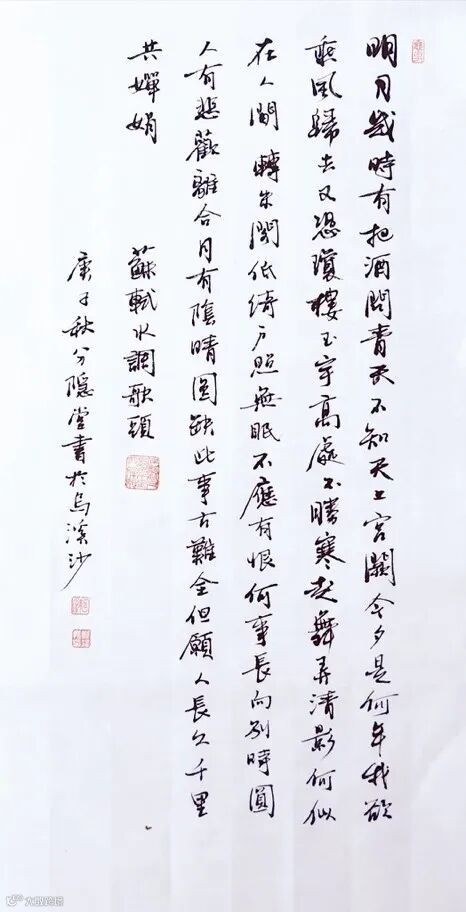 明月幾時有把酒問青天不知天上宮闕今夕是何年我欲
乘風歸去又恐瓊樓玉宇高處不勝寒起舞弄清影何似
在人間 轉朱閣低綺戶照無眠不應有恨何事長向別時圓
人有悲歡離合月有陰晴圓缺此事古難全但願人長久千里
共嬋娟
蘇軾水調歌頭
庚子秋分隱堂書於烏溪沙
大数跨境